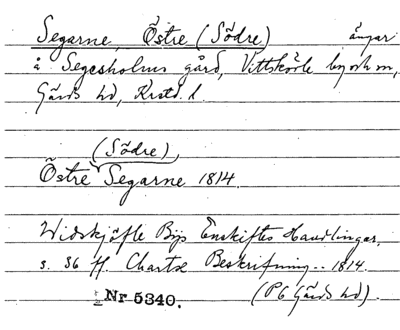 Segarne, Östre (Södre) ängar
å Segesholms gård, Vittskövle by och sn,
Gärds hd, Krstd. l.
(Södre)
Östre Segarne 1814.
Widskjöfle Bys Enskiftes Handlingar,
s. 36 ff. Chartæ Beskrifning.. 1814.
Nr 5340. (PG Gärds hd).